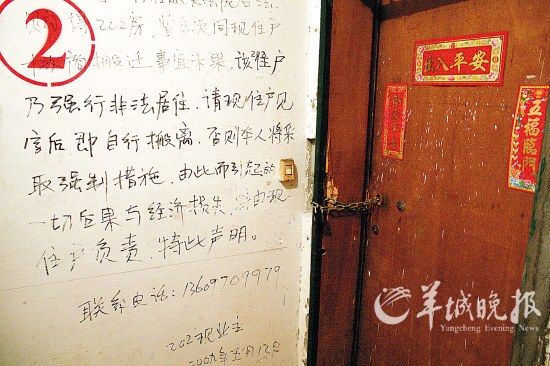 ②
202房,曾多次同现住户
搬迁事宜未果,该住户
乃强行非法居住,请现住户见
宣后即自行搬离,否则本人将采
取强制措施,由此而引起的
一切后果与经济损失,均由现
住户负责,特此声明。
联系电话:13609709979
202现业主
出入平安
五福临门
羊城晚报
Yangcheng Evening News